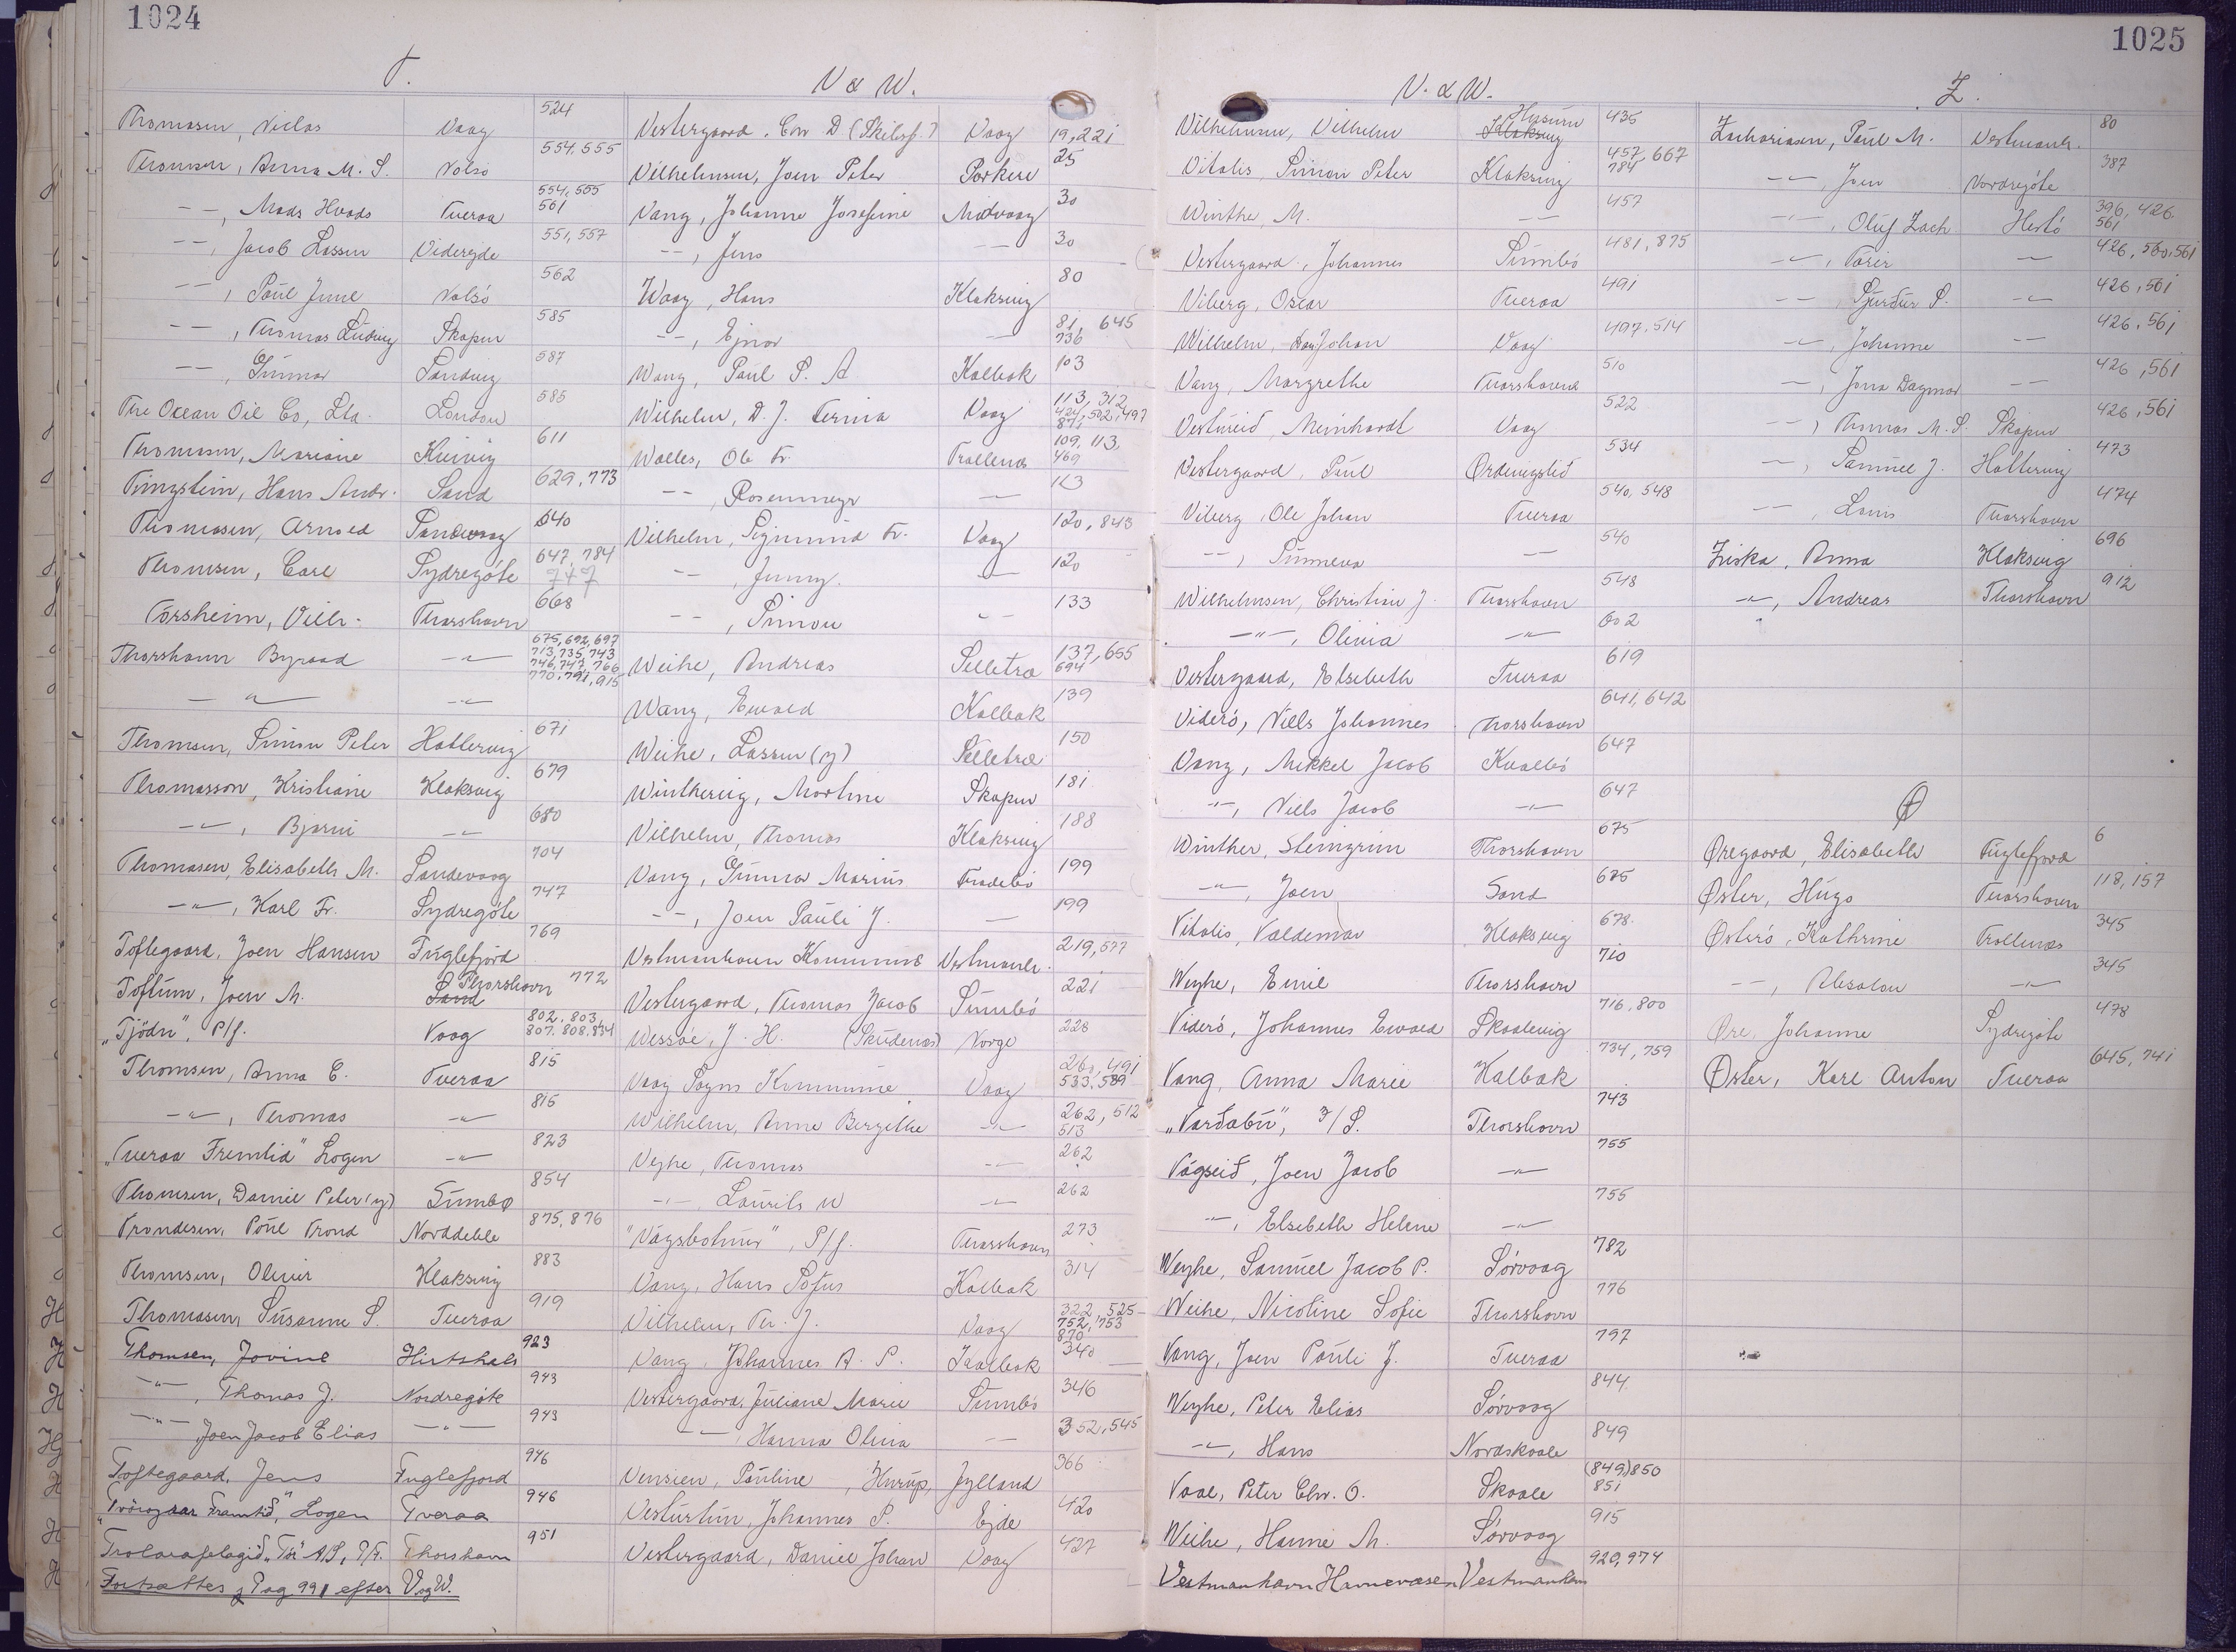 1024
T.
Thomasen, Niclas Vaag 524
Thomsen, Anna M. S. Nolsö 554, 555
--, Mads Hvads Tveraa 554, 555 561
--, Jacob Lassen Viderejde 551, 557
--, Poul Juul Nolsö 562
--, Thomas Ludvig Skopun 585
--, Gunnar Sandvig 587
The Ocean Oil Co, Lta. London 585
Thomasen, Mariane Kvivig 611
Tingstein, Hans Andr. Sand 629, 773
Thomasen, Arnold Sandevaag 640
Thomsen, Carl Sydregöte 647, 784 747
Tórsheim, Vilh. Thorshavn 668
Thorshavn Byraad -"- 675, 692, 697 713, 735, 743 746, 747, 766 770, 791, 915
-"- -"-
Thomsen, Simon Peter Hattervig 671
Thomasson, Kristiane Klaksvig 679
-"-, Bjarni -"- 680
Thomasen, Elisabeth M. Sandevaag 704
-"-, Karl Fr. Sydregöte 747
Toftegaard, Joen Hansen Fuglefjord 769
Toftum, Joen M. Sand Thorshavn 772
„Tjödn", P/f. Vaag 802, 803, 807, 808, 834
Thomsen, Anna C. Tveraa 815
-"-, Thomas -"- 815
„Tveraa Fremtid" Logen -"- 823
Thomsen, Daniel Peter (y) Sumbø 854
Trondesen, Poul Trond Norddeble 875, 876
Thomsen, Oliver Klaksvig 883
Thomasen, Susanne S. Tveraa 919
Thomsen, Jovine Hirtshals 923
-"-, Thomas J. Nordregöte 943
-"- Joen Jacob Elias -"- 943
Toftegaard, Jens Fuglefjord 946
"Tvöroyrar Framtið," Logen Tveraa 946
Trolarafelagið „Tór" A/S, P/F. Thorshavn 951
Fortsættes j Pag 991 efter V og W.
V & W.
Vestergaard, Chr. D (Skibsf.) Vaag 19, 221
Vilhelmsen, Joen Peter Porkeri 25
Vang, Johanne Josefine Midvaag 30
--, Jens -- 30
Waag, Hans Klaksvig 80
--, Ejnar -- 81, 645 736
Wang, Poul P. A Kalbak 103
Wilhelm, D. J. Ternia Vaag 113, 312
Walles, Ole Fr. Trøllenæs 109, 113, 469
--, Rosenmeyr -- 113
Vilhelm, Sigmund Fr. Vaag 120, 843
--, Jenny. -- 120
--, Simon -- 133
Weihe, Andreas Selletræ 137, 655 694
Wang, Ewald Kalbak 139
Weihe, Lassen (y) Selletræ 150
Winthervig, Martine Skopun 181
Vilhelm, Thomas Klaksvig 188
Vang, Gunnar Marius Fradebö 199
--, Joen Pauli J. -- 199
Vestmanhavn Kommune Vestmanh. 219, 577
Vestergaard, Thomas Jacob Sumbö 221
Wessöe, J. H. (Skudenæs) Norge 228
Vaag Sogns Kommune Vaag 260, 491 533, 589
Wilhelm, Anne Bergithe -"- 262, 512 513
Vejhe, Thomas -- 262
-"- Laurits W -"- 262
"Vágsbotnur", P/f. Thorshavn 273
Vang, Hans Sofus Kalbak 314
Vilhelm, Th. J. Vaag 322, 525 752, 753 870
Vang, Johannes A. P. Kalbak 340
Vestergaard, Juliane Marie Sumbö 346
--, Hanna Olivia -- 352, 545
Vensien, Pauline, Hurup, Jylland 366
Vesturtún, Johannes P. Ejde 420
Vestergaard, Daniel Johan Vaag 427
1025
V. & W.
Vilhelmsen, Vilhelm Klaksvig Husum 435
Vitalis, Simon Peter Klaksvig 457, 667 784
Winthe, M. -- 457
Vestergaard, Johannes Sumbö 481, 875
Viberg, Oscar Tveraa 491
Wilhelm, Dan Johan Vaag 497, 514
Vang, Margrethe Thorshavn 510
Vestureid, Meinhardt Vaag 522
Vestergaard, Poul Ördevigslid 534
Viberg, Ole Johan Tveraa 540, 548
--, Sunneva -- 540
Wilhelmsen, Christian J. Thorshavn 548
-"-, Olivia -"- 602
Vestergaard, Elsebeth Tveraa 619
Viderö, Niels Johannes Thorshavn 641, 642
Vang, Mikkel Jacob Kvalbö 647
-"-, Niels Jacob -"- 647
Winther, Steingrim Thorshavn 675
-"-, Joen Sand 675
Vitalis, Valdemar Klaksvig 678
Weyhe, Emil Thorshavn 710
Viderö, Johannes Ewald Skaalevig 716, 800
Vang, Anna Marie Kalbak 734, 759
„Varðabú", I/S. Thorshavn 743
Vágseið, Joen Jacob -"- 755
-"-, Elsebeth Helene -"- 755
Weyhe, Samuel Jacob P. Sörvaag 782
Weihe, Nicoline Sofie Thorshavn 776
Vang, Joen Pauli J. Tveraa 797
Weyhe, Peter Elias Sörvaag 844
-"-, Hans Nordskaale 849
Vaal, Peter Chr. O. Skaale (849,) 850 851
Weihe, Hanne M. Sørvaag 915
Vestmanhavn Havnevæsen Vestmanhavn 920, 974
Z.
Zachariasen, Poul M. Vestmanh. 80
--, Joen Nordregöte 387
-"-, Oluf Zach Hestö 396, 426, 561
-"-, Tórer -- 426, 560, 561
--, Sjurður S. -"- 426, 561
-"-, Johanne -- 426, 561
--, Jona Dagmar -- 426, 561
--, Thomas M. S. Skopun 426, 561
--, Samuel J. Hattervig 473
--, Louis Thorshavn 474
Ziska, Anna Klaksvig 696
-"-, Andreas Thorshavn 912
Ø
Øregaard, Elisabeth Fuglefjord 6
Øster, Hugo Thorshavn 118, 157
Østerö, Kathrine Trøllenæs 345
--, Absalon -"- 345
Øre, Johanne Sydregöte 478
Øster, Karl Anton Tveraa 645, 741